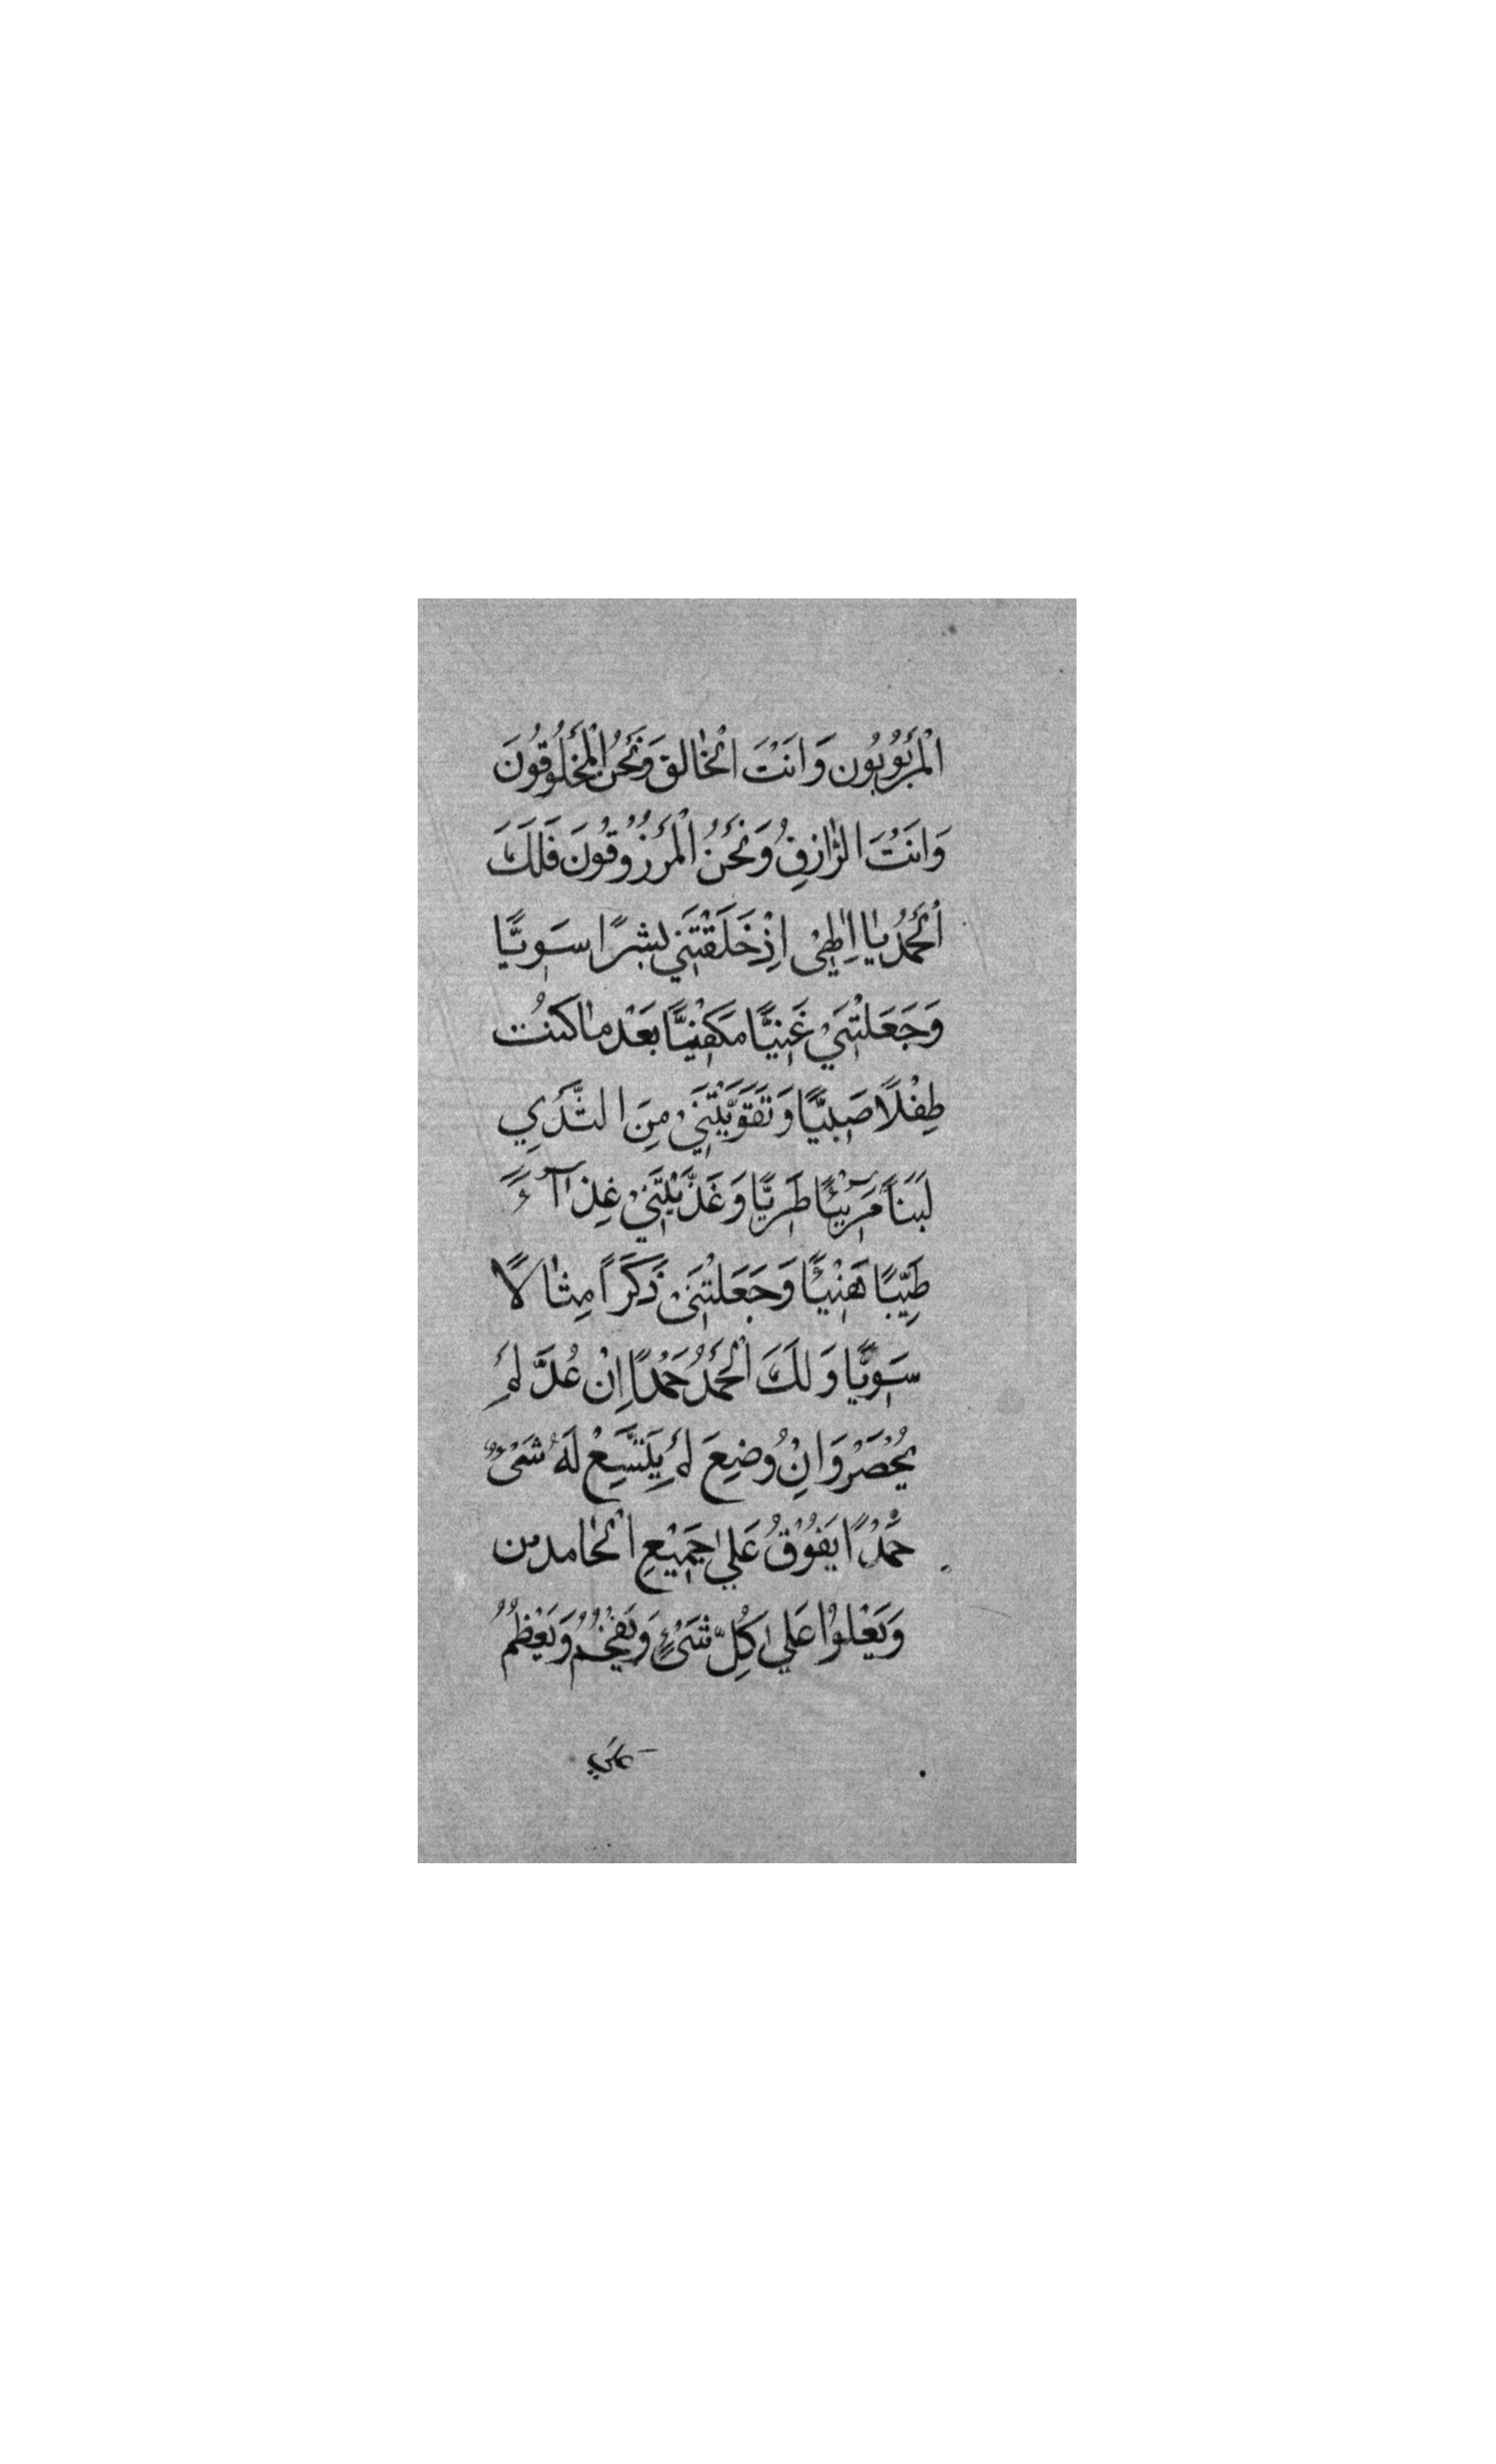 الْمَرْبُوْبُون وَاَنْتَ الْخٰالق وَنَحْنُ الْمَخْلُوْقُونَ
وَاَنْتَ الرّٰازِقُ وَنَحْنُ الْمَرْزُوْقُونَ فَلَكَ
اَلْحَمْدُ يٰا اِلٰهِىْ اِذْ خَلَقْتَنِي بشرًا سَوِيًّا
وَجَعَلْتَنِيْ غَنِيًّا مَكْفِيًّا بَعْدَ مٰا كنتُ
طِفْلًا صَبِيًّا وَتَقَوَّيْتَنِيْ مِنَ الثَّدْيِ
لَبَنًا مَرِيْئًا طَرِيًّا وَغَذَّيْتَنِيْ غِذٰآءً
طَيِّبًا هَنِيْئًا وَجَعَلْتَنِىْ ذَكَرًا مِثٰالًا
سَوِيًّا وَلَكَ الْحَمْدُ حَمْدًا اِنْ عُدَّ لَمْ
يُحْصَرْ وَاِنْ وُضِعَ لَمْ يَتَّسِعْ لَهُ شَىْءٌ
حَمْدًا يَفُوْقُ عَلىٰ جَمِيْعِ الْحٰامدىن
وَيَعْلُوْا عَلىٰ كُلِّ شَىْءٍ وَيَفْخُمُ وَيَعْظُمُ
علي